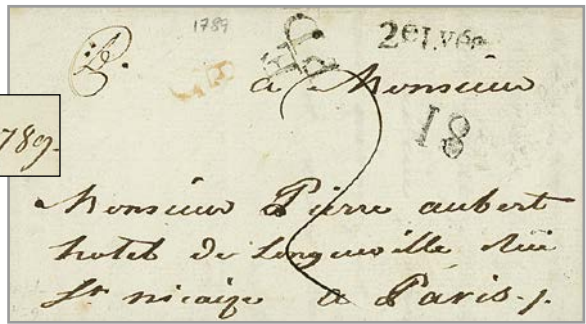 1789
2e Lvée
a Monsieur
18
789.
Monsieur Pierre aubert
hotel de Longueville Rüe
St nicaise a Paris.